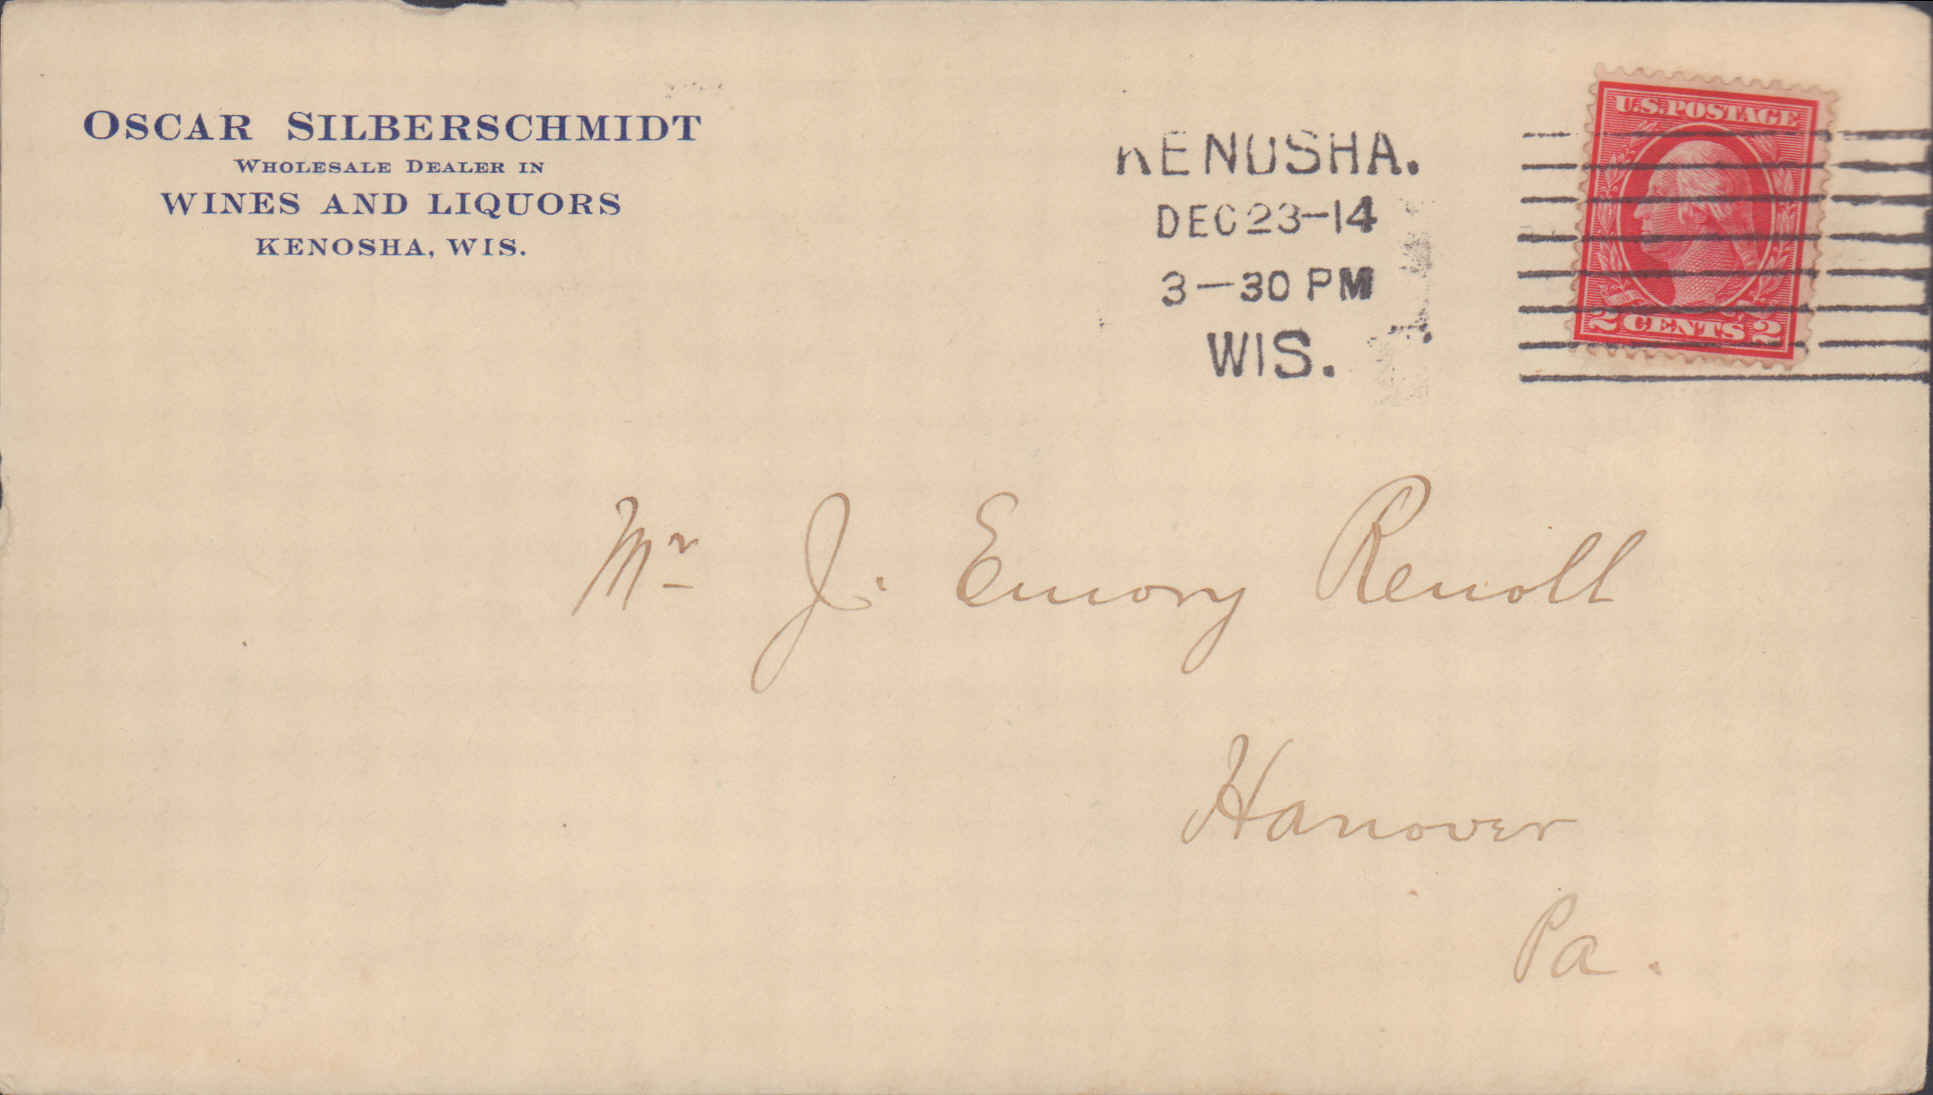 OSCAR SILBERSCHMIDT
WHOLESALE DEALER IN
WINES AND LIQUORS
KENOSHA, WIS.
KENOSHA.
DEC 23-14
3-30 PM
WIS.
U.S. POSTAGE
2 CENTS 2
Mr J. Emory Renoll
Hanover
Pa.